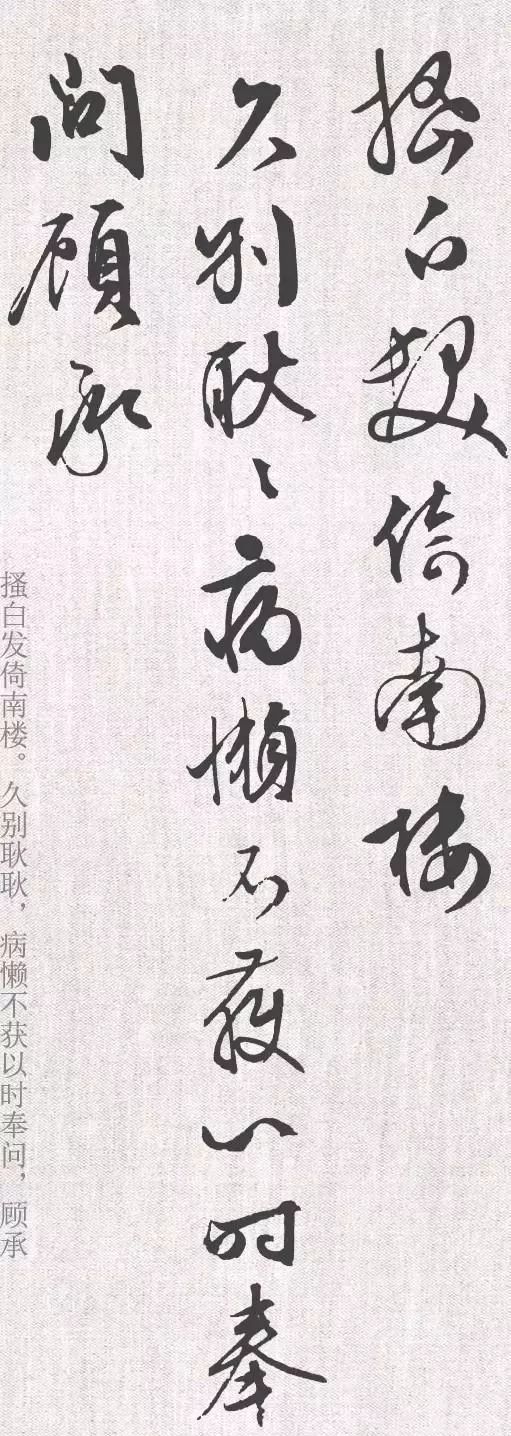 搔白髮倚南樓
久別耿〻病懶不獲以時奉
問顧承
搔白发倚南楼。久别耿耿，病懒不获以时奉问，顾承